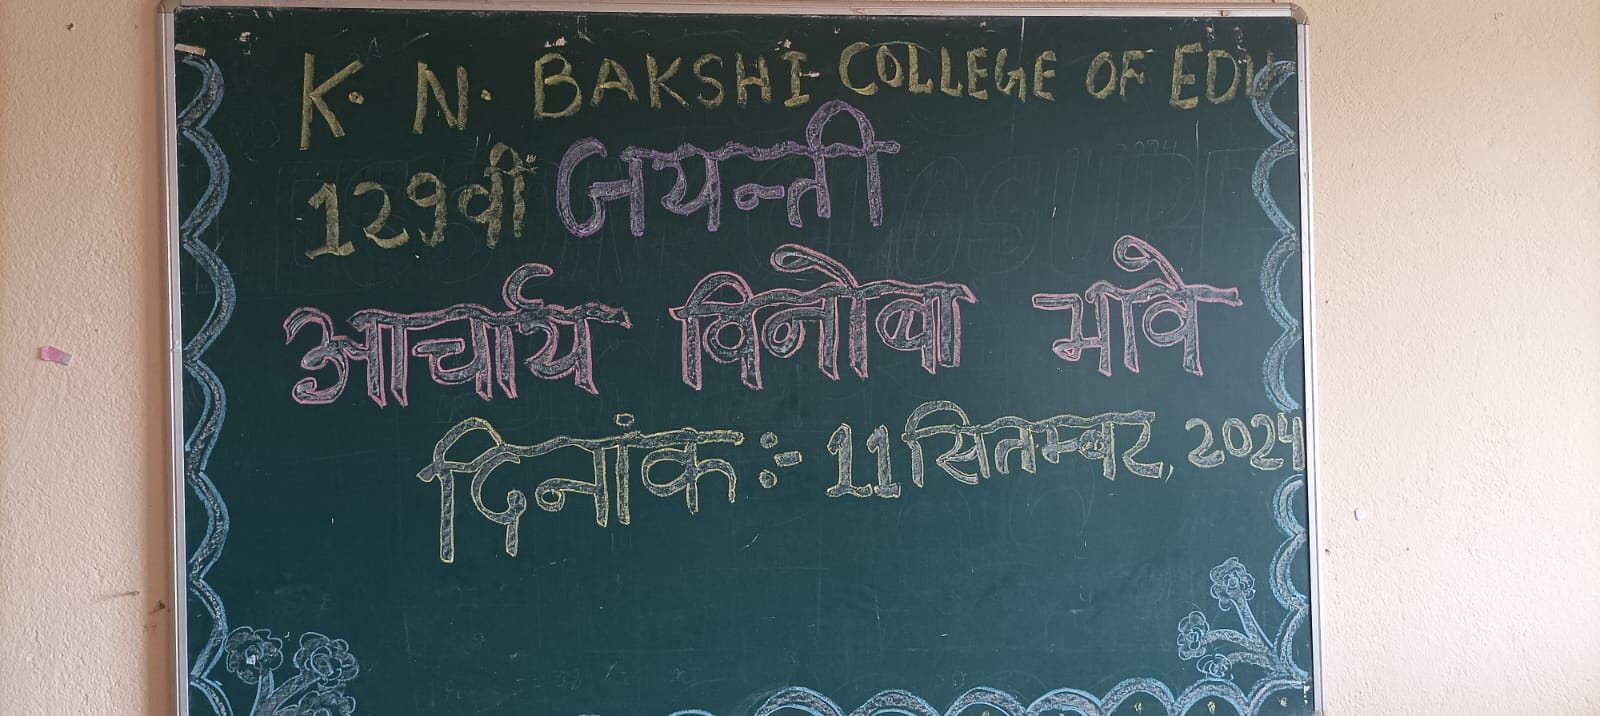 K. N. BAKSHI COLLEGE OF EDU
129वीं जयन्ती
आचार्य विनोबा भावे
दिनांक :- 11 सितम्बर, 2024